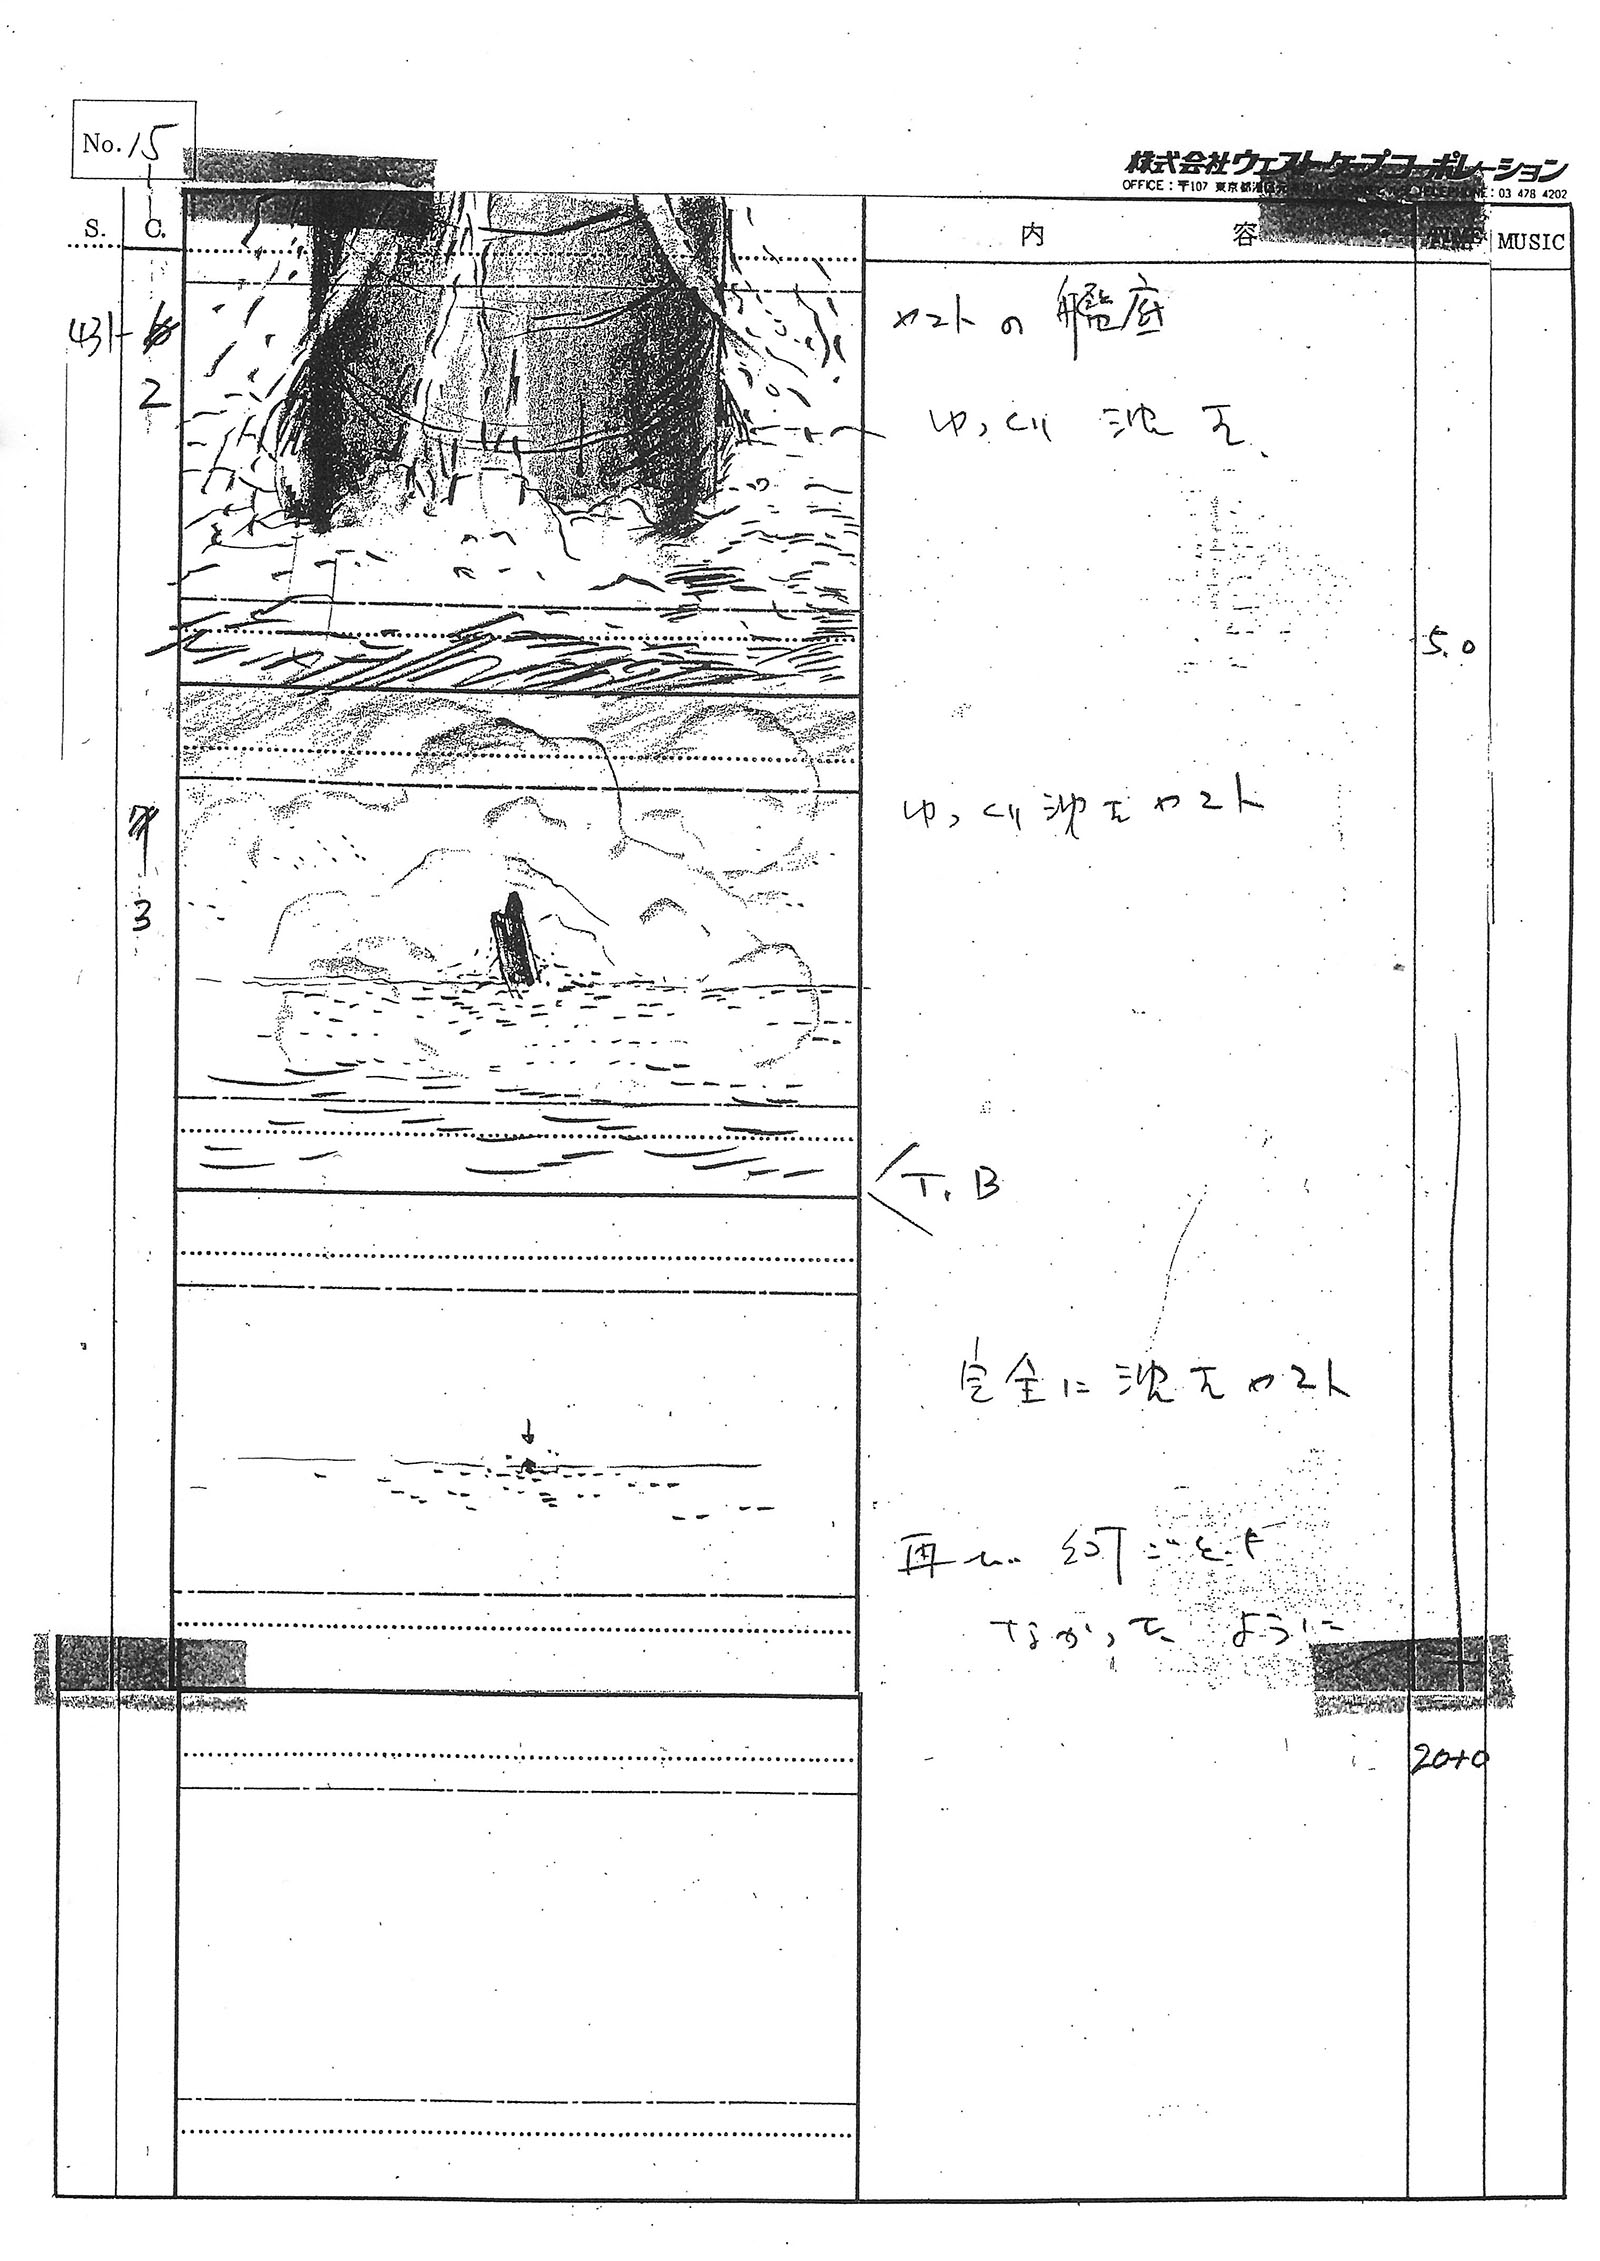 No. 15
株式会社ウェストケープコーポレーション
OFFICE : 〒107 東京都港区 TELEPHONE : 03 478 4202
S. C. 内 容 TIME MUSIC
431-
2
ヤマトの艦底
ゆっくり沈云
5.0
3
ゆっくり沈云ヤマト
T.B
完全に沈云ヤマト
再び 幻ごとき
なかった ように
20+0